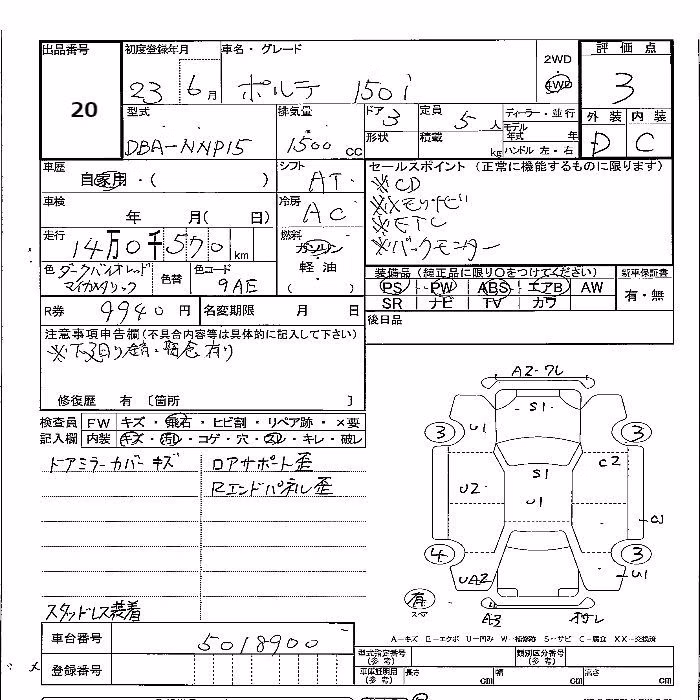 出品番号 初度登録年月 車名・グレード 評価点
20 23 6月 ポルテ 150i 2WD 4WD 3
型式 排気量 ドア 3 定員 5人 ディーラー・並行 外装 内装
モデル年式 年
DBA-NNP15 1500 cc 形状 積載 kg ハンドル 左・右 D C
車歴 自家用・( ) シフト AT セールスポイント (正常に機能するものに限ります)
※CD
車検 年 月( 日) 冷房 AC ※メモリナビ
※ETC
走行 14万0千570 km 燃料 ガソリン ※バックモニター
軽油 ( )
色 ダークバイオレットマイカメタリック 色替 色コード 9AE 装備品 (純正品に限り○をつけてください) 新車保証書
PS PW ABS エアB AW 有・無
SR ナビ TV カワ
R券 9940 円 名変期限 月 日 後日品
注意事項申告欄(不具合内容等は具体的に記入して下さい)
※下廻り錆・腐食有り
修復歴 有 〔箇所 〕
検査員 FW キズ・飛石・ヒビ割・リペア跡・×要
記入欄 内装 キズ・汚レ・コゲ・穴・スレ・キレ・破レ
ドアミラーカバーキズ ロアサポート歪
Rエンドパネル歪
A2-ワレ
S1
3 U1 3
S1 C2
U2 U1
C1
4 3
UA2 U1
有 スペア A3
スタッドレス装着
A-キズ E-エクボ U-凹み W-補修跡 S-サビ C-腐食 XX-交換済
車台番号 5018900 型式指定番号(参考) 類別区分番号(参考)
登録番号 長さ cm 幅 cm 高さ cm